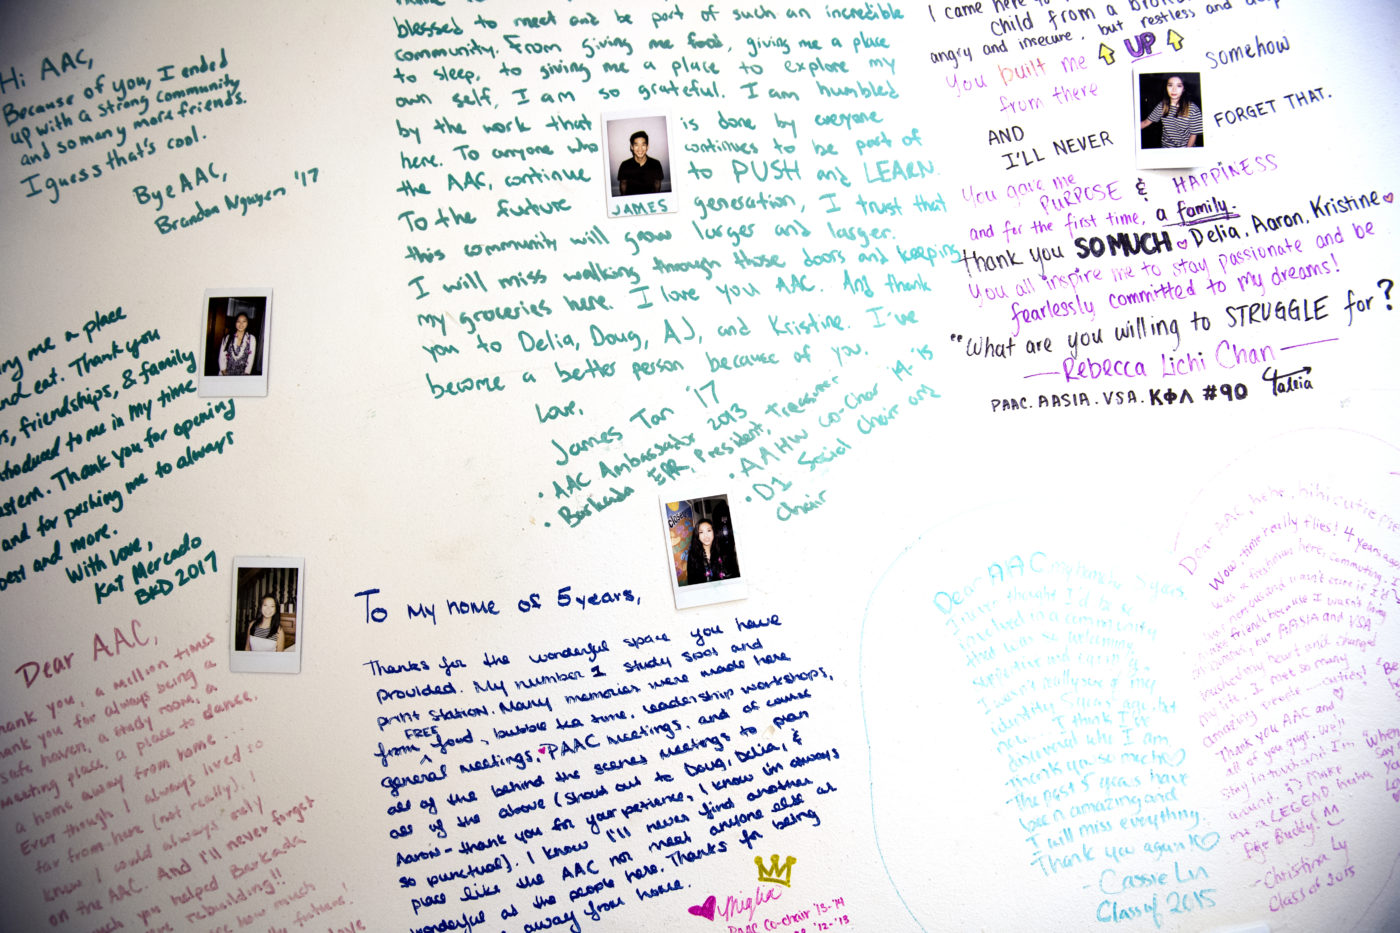 Hi AAC,
Because of you, I ended
up with a strong community
and so many more friends.
I guess that's cool.
Bye AAC,
Brandon Nguyen '17
me a place
eat. Thank you
friendships, & family
to me in my time
Thank you for opening
and for pushing me to always
and more.
With love,
Kat Mercado
BKD 2017
Dear AAC,
thank you, a million times
thank you for always being a
safe haven, a study room, a
meeting place, a place to dance,
a home away from home...
Even though I always lived so
far from here (not really), I
know I would always rely
on the AAC. And I'll never forget
you helped Barkada
rebuilding!!
how much
love
blessed to meet and be part of such an incredible
community. From giving me food, giving me a place
to sleep, to giving me a place to explore my
own self, I am so grateful. I am humbled
by the work that is done by everyone
here. To anyone who continues to be part of
the AAC, continue to PUSH and LEARN.
To the future generation, I trust that
this community will grow larger and larger.
I will miss walking through those doors and keeping
my groceries here. I love you AAC. And thank
you to Delia, Doug, AJ, and Kristine. I've
become a better person because of you.
Love,
James Tan '17
• AAC Ambassador 2013
• Barkada EPR, President, Treasurer
• AAHW Co-Chair '14-'15
• D1 Social Chair and
Chair
JAMES
To my home of 5 years,
Thanks for the wonderful space you have
provided. My number 1 study spot and
print station. Many memories were made here
from FREE food, bubble tea time, leadership workshops,
general meetings, PAAC meetings, and of course
all of the behind the scenes meetings to plan
all of the above (Shout out to Doug, Delia, &
Aaron - thank you for your patience, I know I'm always
so punctual). I know I'll never find another
place like the AAC nor meet anyone else as
wonderful as the people here. Thanks for being
away from home.
Miglia
PAAC Co-chair '13-'14
'12-'13
I came here
child from a
angry and insecure, but restless and
You built me UP somehow
from there
AND
I'LL NEVER FORGET THAT.
You gave me
PURPOSE & HAPPINESS
and for the first time, a family.
thank you SO MUCH ♥ Delia. Aaron. Kristine ♥
You all inspire me to stay passionate and be
fearlessly committed to my dreams!
"What are you willing to STRUGGLE for?
— Rebecca Lichi Chan —
PAAC. AASIA. VSA. ΚΦΛ #90
Dear AAC, my home for 5 years,
I never thought I'd be so
involved in a community
that was so welcoming,
I wasn't really sure of my
identity 5 years ago, but
now... I think I've
discovered who I am.
Thank you so much ♡
The past 5 years have
been amazing and
I will miss everything.
Thank you again ♡
- Cassie Lin
Class of 2015
Dear AAC, hehe, hihi cutie
Wow, time really flies! 4 years ago
was a freshman here, commuting.
nervous and wasn't sure if I'd
friends because I wasn't living
on campus, but AASIA and VSA
touched my heart and changed
my life. I met so many
amazing people
Thank you AAC and
all of you guys. We'll
stay in touch and I'm
around. :) Make
me a LEGEND, huhu
Page Buddy!
- Christina Ly
Class of 2015